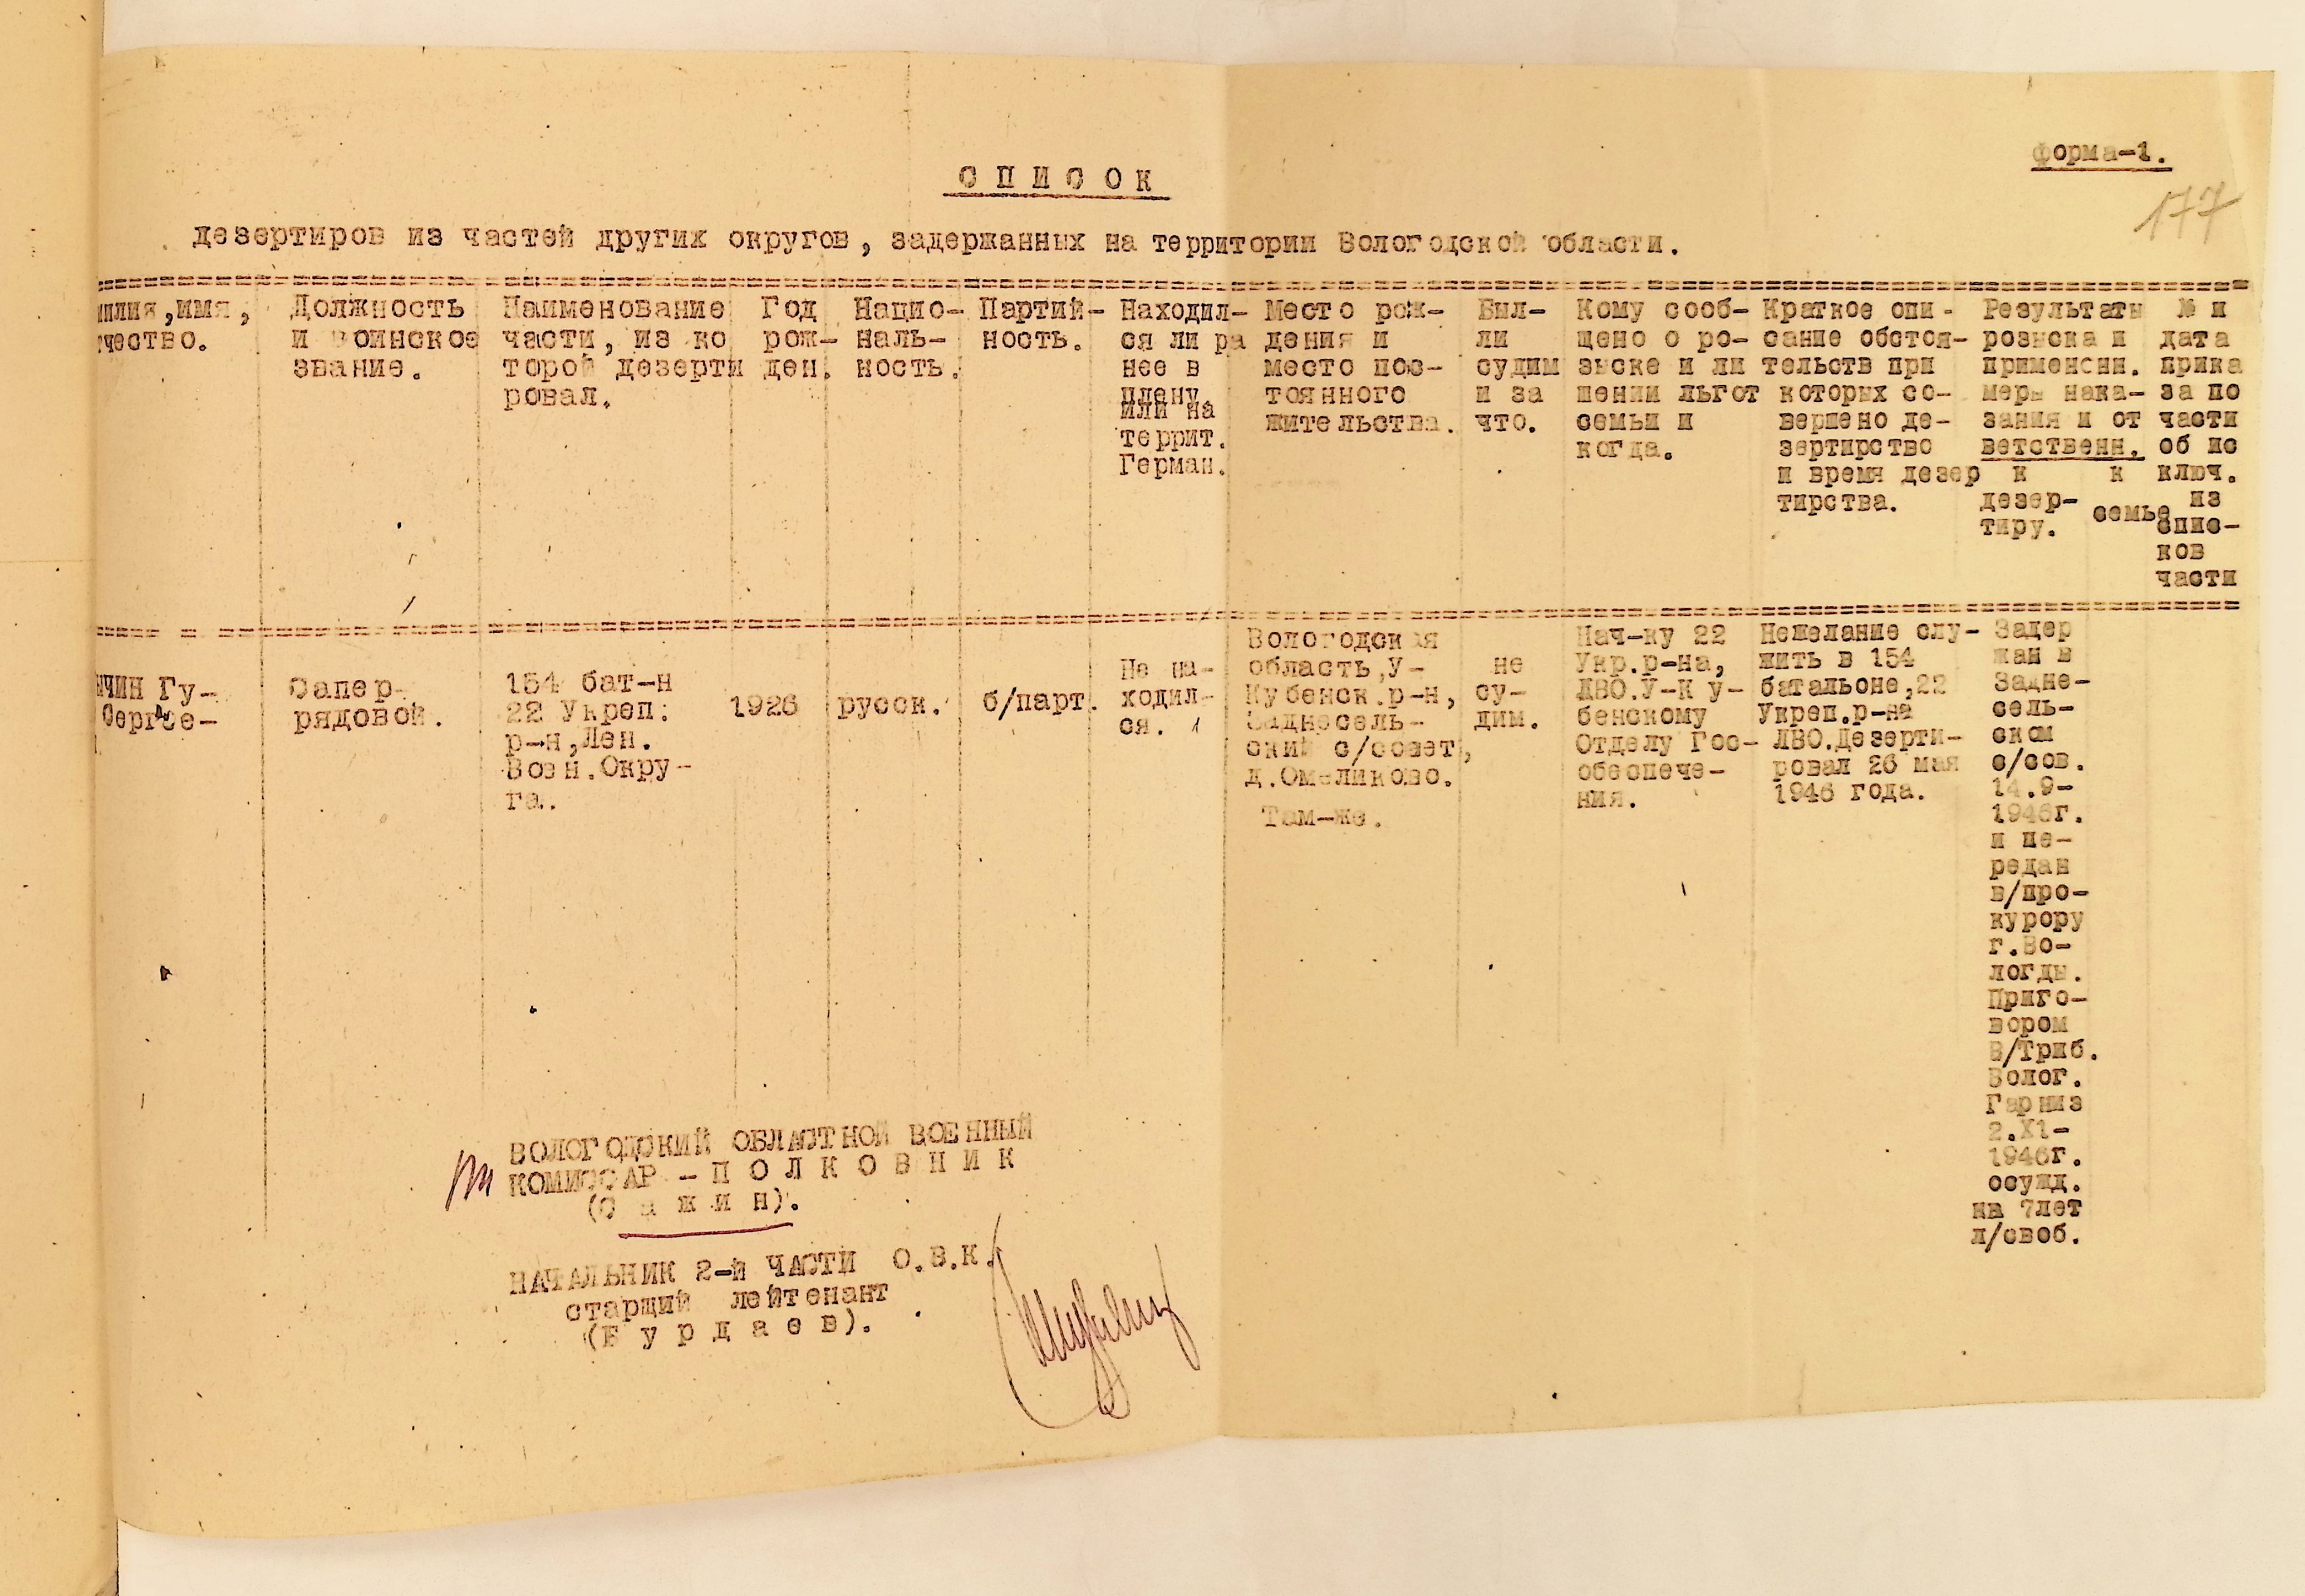 форма-1.
177
С П И С О К
дезертиров из частей других округов, задержанных на территории Вологодской области.
милия,имя,
чество.
Должность
и воинское
звание.
Наименование
части, из ко
торой дезерти
ровал.
Год
рож-
ден.
Нацио-
наль-
ность.
Партий-
ность.
Находил-
ся ли ра
нее в
плену
или на
террит.
Герман.
Место рож-
дения и
место пос-
тоянного
жительства.
Был-
ли
судим
и за
что.
Кому сооб-
щено о ро-
зыске и ли
шении льгот
семьи и
когда.
Краткое опи-
сание обстоя-
тельств при
которых со-
вершено де-
зертирство
и время дезер
тирства.
Результаты
розыска и
применени.
меры нака-
зания и от
ветственн.
к
дезер-
тиру.
к
семье
№ и
дата
прика
за по
части
об ис
ключ.
из
спис-
ков
части
ЧИН Гу-
Сергее-
Сапер
рядовой.
154 бат-н
22 Укреп.
р-н,Лен.
Воен.Окру-
га.
1926
русск.
б/парт.
Не на-
ходил-
ся.
Вологодская
область,У-
Кубенск.р-н,
Заднесель-
ский с/совет,
д.Омеликово.
Там-же.
не
су-
дим.
Нач-ку 22
Укр.р-на,
ЛВО.У-К у-
бенскому
Отделу Гос-
обеспече-
ния.
Нежелание слу-
жить в 154
батальоне,22
Укреп.р-на
ЛВО.Дезерти-
ровал 26 мая
1946 года.
Задер
жан в
Задне-
сель-
ском
с/сов.
14.9-
1946г.
и пе-
редан
в/про-
курору
г.Во-
логды.
Приго-
вором
В/Триб.
Волог.
Гарниз
2.X1-
1946г.
осужд.
на 7лет
л/своб.
ВОЛОГОДСКИЙ ОБЛАСТНОЙ ВОЕННЫЙ
КОМИССАР - П О Л К О В Н И К
(С а ж и н).
НАЧАЛЬНИК 2-й ЧАСТИ О.В.К.
старший лейтенант
(Б у р д а е в).